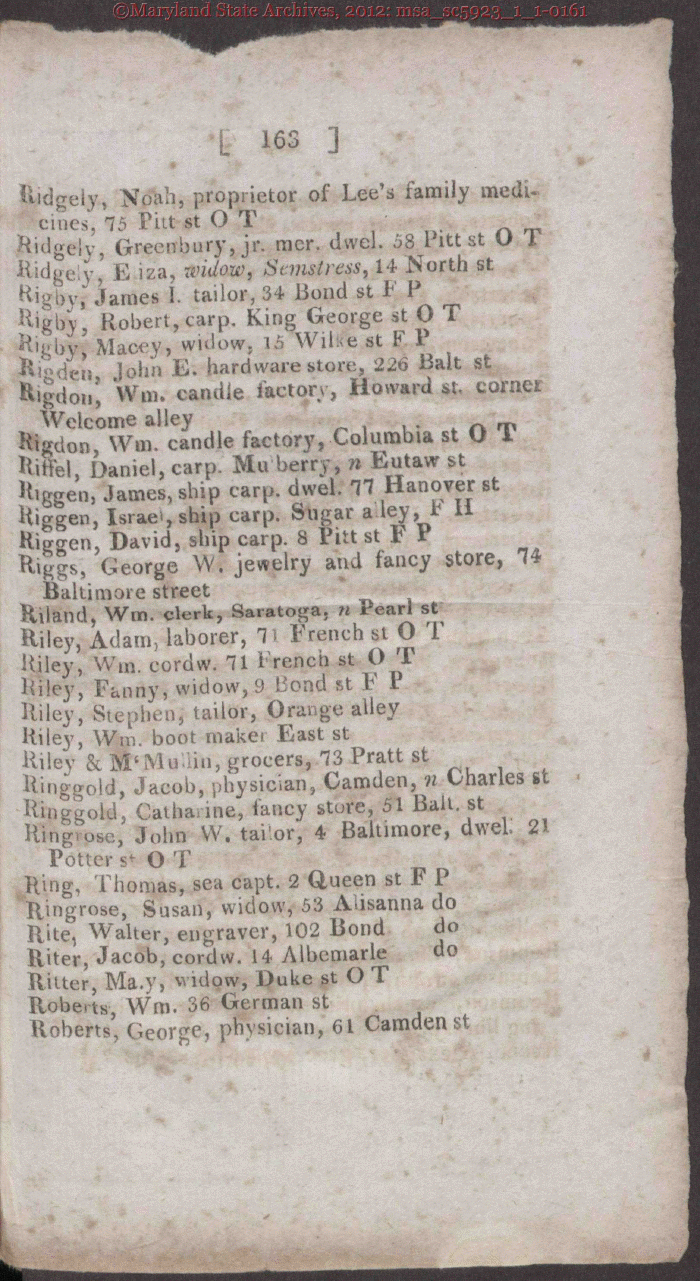 ©Maryland State Archives, 2012: msa_sc5923_1_1-0161
[ 163 ]
Ridgely, Noah, proprietor of Lee's family medi-
cines, 75 Pitt st O T
Ridgely, Greenbury, jr. mer. dwel. 58 Pitt st O T
Ridgely, E iza, widow, Semstress, 14 North st
Rigby, James I. tailor, 34 Bond st F P
Rigby, Robert, carp. King George st O T
Rigby, Macey, widow, 15 Wilke st F P
Rigden, John E. hardware store, 226 Balt st
Rigdon, Wm. candle factory, Howard st. corner
Welcome alley
Rigdon, Wm. candle factory, Columbia st O T
Riffel, Daniel, carp. Mu berry, n Eutaw st
Riggen, James, ship carp. dwel. 77 Hanover st
Riggen, Israel, ship carp. Sugar alley, F H
Riggen, David, ship carp. 8 Pitt st F P
Riggs, George W. jewelry and fancy store, 74
Baltimore street
Riland, Wm. clerk, Saratoga, n Pearl st
Riley, Adam, laborer, 71 French st O T
Riley, Wm. cordw. 71 French st O T
Riley, Fanny, widow, 9 Bond st F P
Riley, Stephen, tailor, Orange alley
Riley, Wm. boot maker East st
Riley & M‘Mullin, grocers, 73 Pratt st
Ringgold, Jacob, physician, Camden, n Charles st
Ringgold, Catharine, fancy store, 51 Balt. st
Ringrose, John W. tailor, 4 Baltimore, dwel. 21
Potter st O T
Ring, Thomas, sea capt. 2 Queen st F P
Ringrose, Susan, widow, 53 Alisanna do
Rite, Walter, engraver, 102 Bond do
Riter, Jacob, cordw. 14 Albemarle do
Ritter, Ma.y, widow, Duke st O T
Roberts, Wm. 36 German st
Roberts, George, physician, 61 Camden st